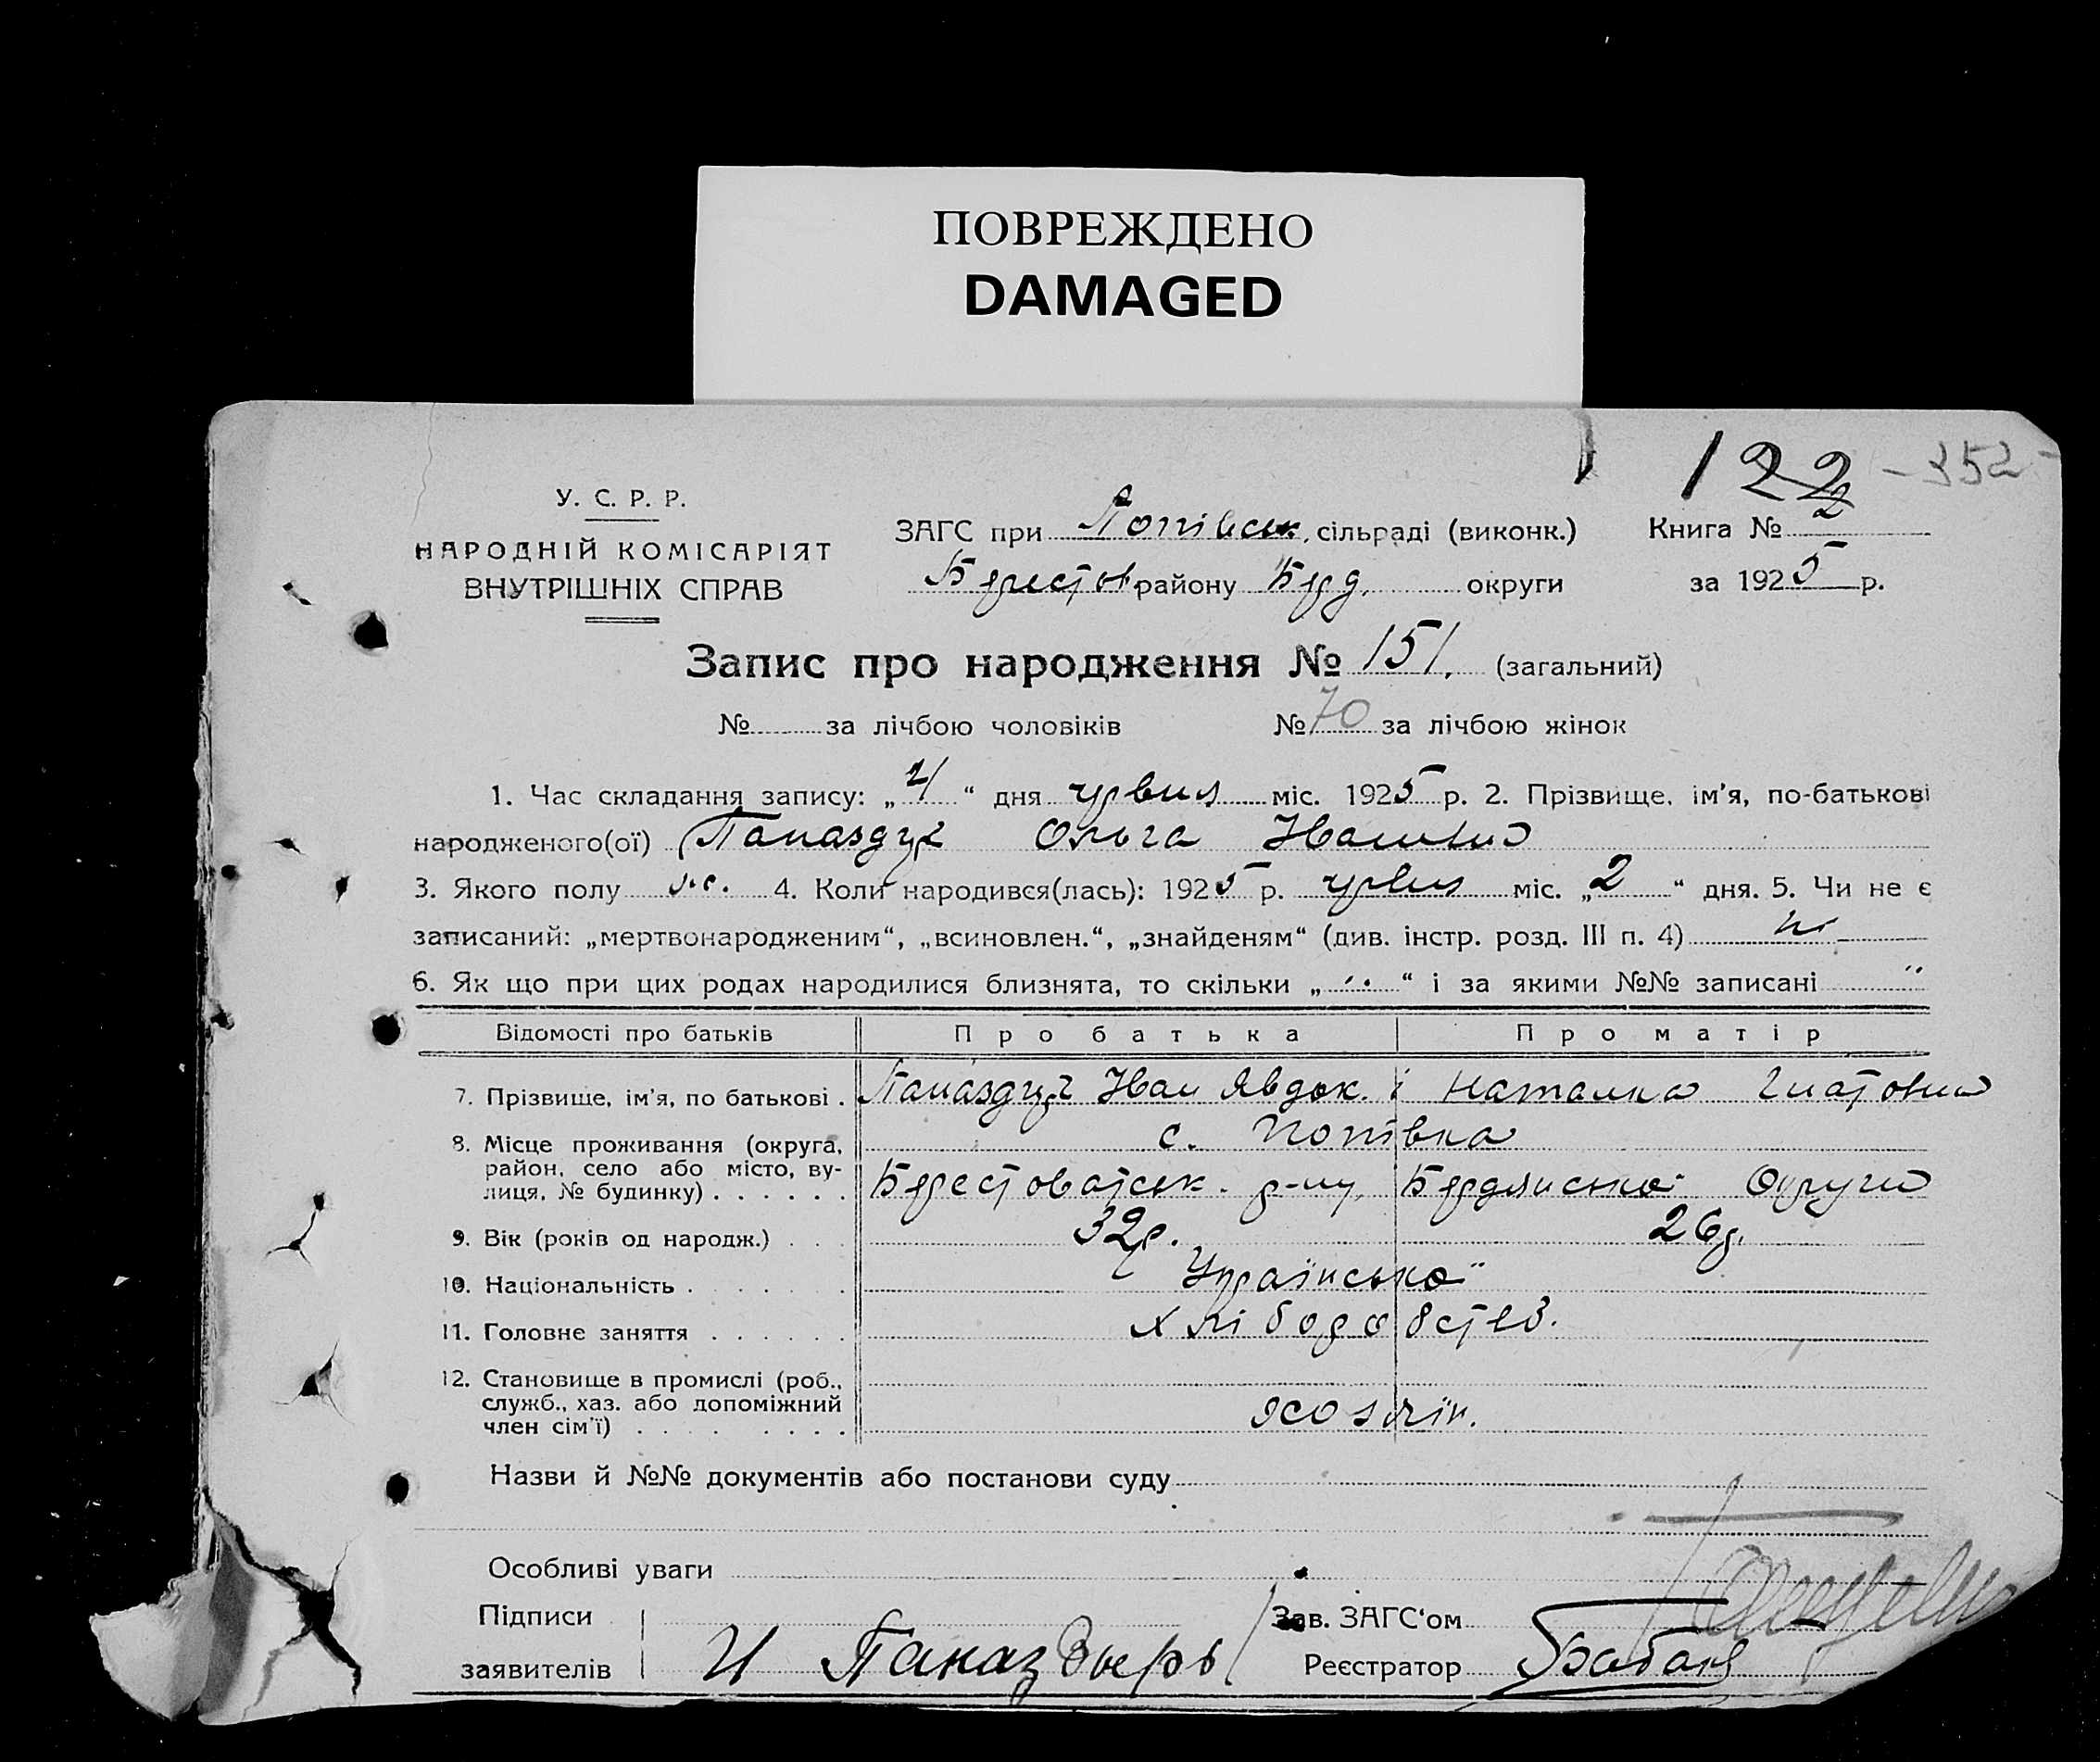 ПОВРЕЖДЕНО
DAMAGED
122 - 352 -
У. С. Р. Р.
НАРОДНІЙ КОМІСАРІЯТ
ВНУТРІШНІХ СПРАВ
ЗАГС при Попівськ. сільраді (виконк.) Книга № 2
Берестов району Берд. округи за 1925 р.
Запис про народження № 151. (загальний)
№ за лічбою чоловіків № 70 за лічбою жінок
1. Час складання запису: „4“ дня червня міс. 1925 р. 2. Прізвище, ім'я, по-батькові
народженого(ої) Паназдирь Ольга Іванівна
3. Якого полу ж. 4. Коли народився(лась): 1925 р. червня міс. „2“ дня. 5. Чи не є
записаний: „мертвонародженим“, „всиновлен.“, „знайденям“ (див. інстр. розд. III п. 4) ні
6. Як що при цих родах народилися близнята, то скільки „ “ і за якими №№ записані "
Відомості про батьків Про батька Про матір
7. Прізвище, ім'я, по батькові . Іван Явдок. і Наталка Гнатовна
8. Місце проживання (округа, с. Попівка
район, село або місто, ву-
лиця, № будинку) . . . . . . Берестоватськ. р-ну, Бердянської Округи
9. Вік (років од народж.) . . . 32р. 26р.
10. Національність . . . . . . . Української
11. Головне заняття . . . . . . хліборобств.
12. Становище в промислі (роб.,
служб., хаз. або допоміжний
член сім'ї) . . . . . . . . хозяїн.
Назви й №№ документів або постанови суду
Особливі уваги
Підписи Зав. ЗАГС'ом
заявителів И Паназдырь Реєстратор